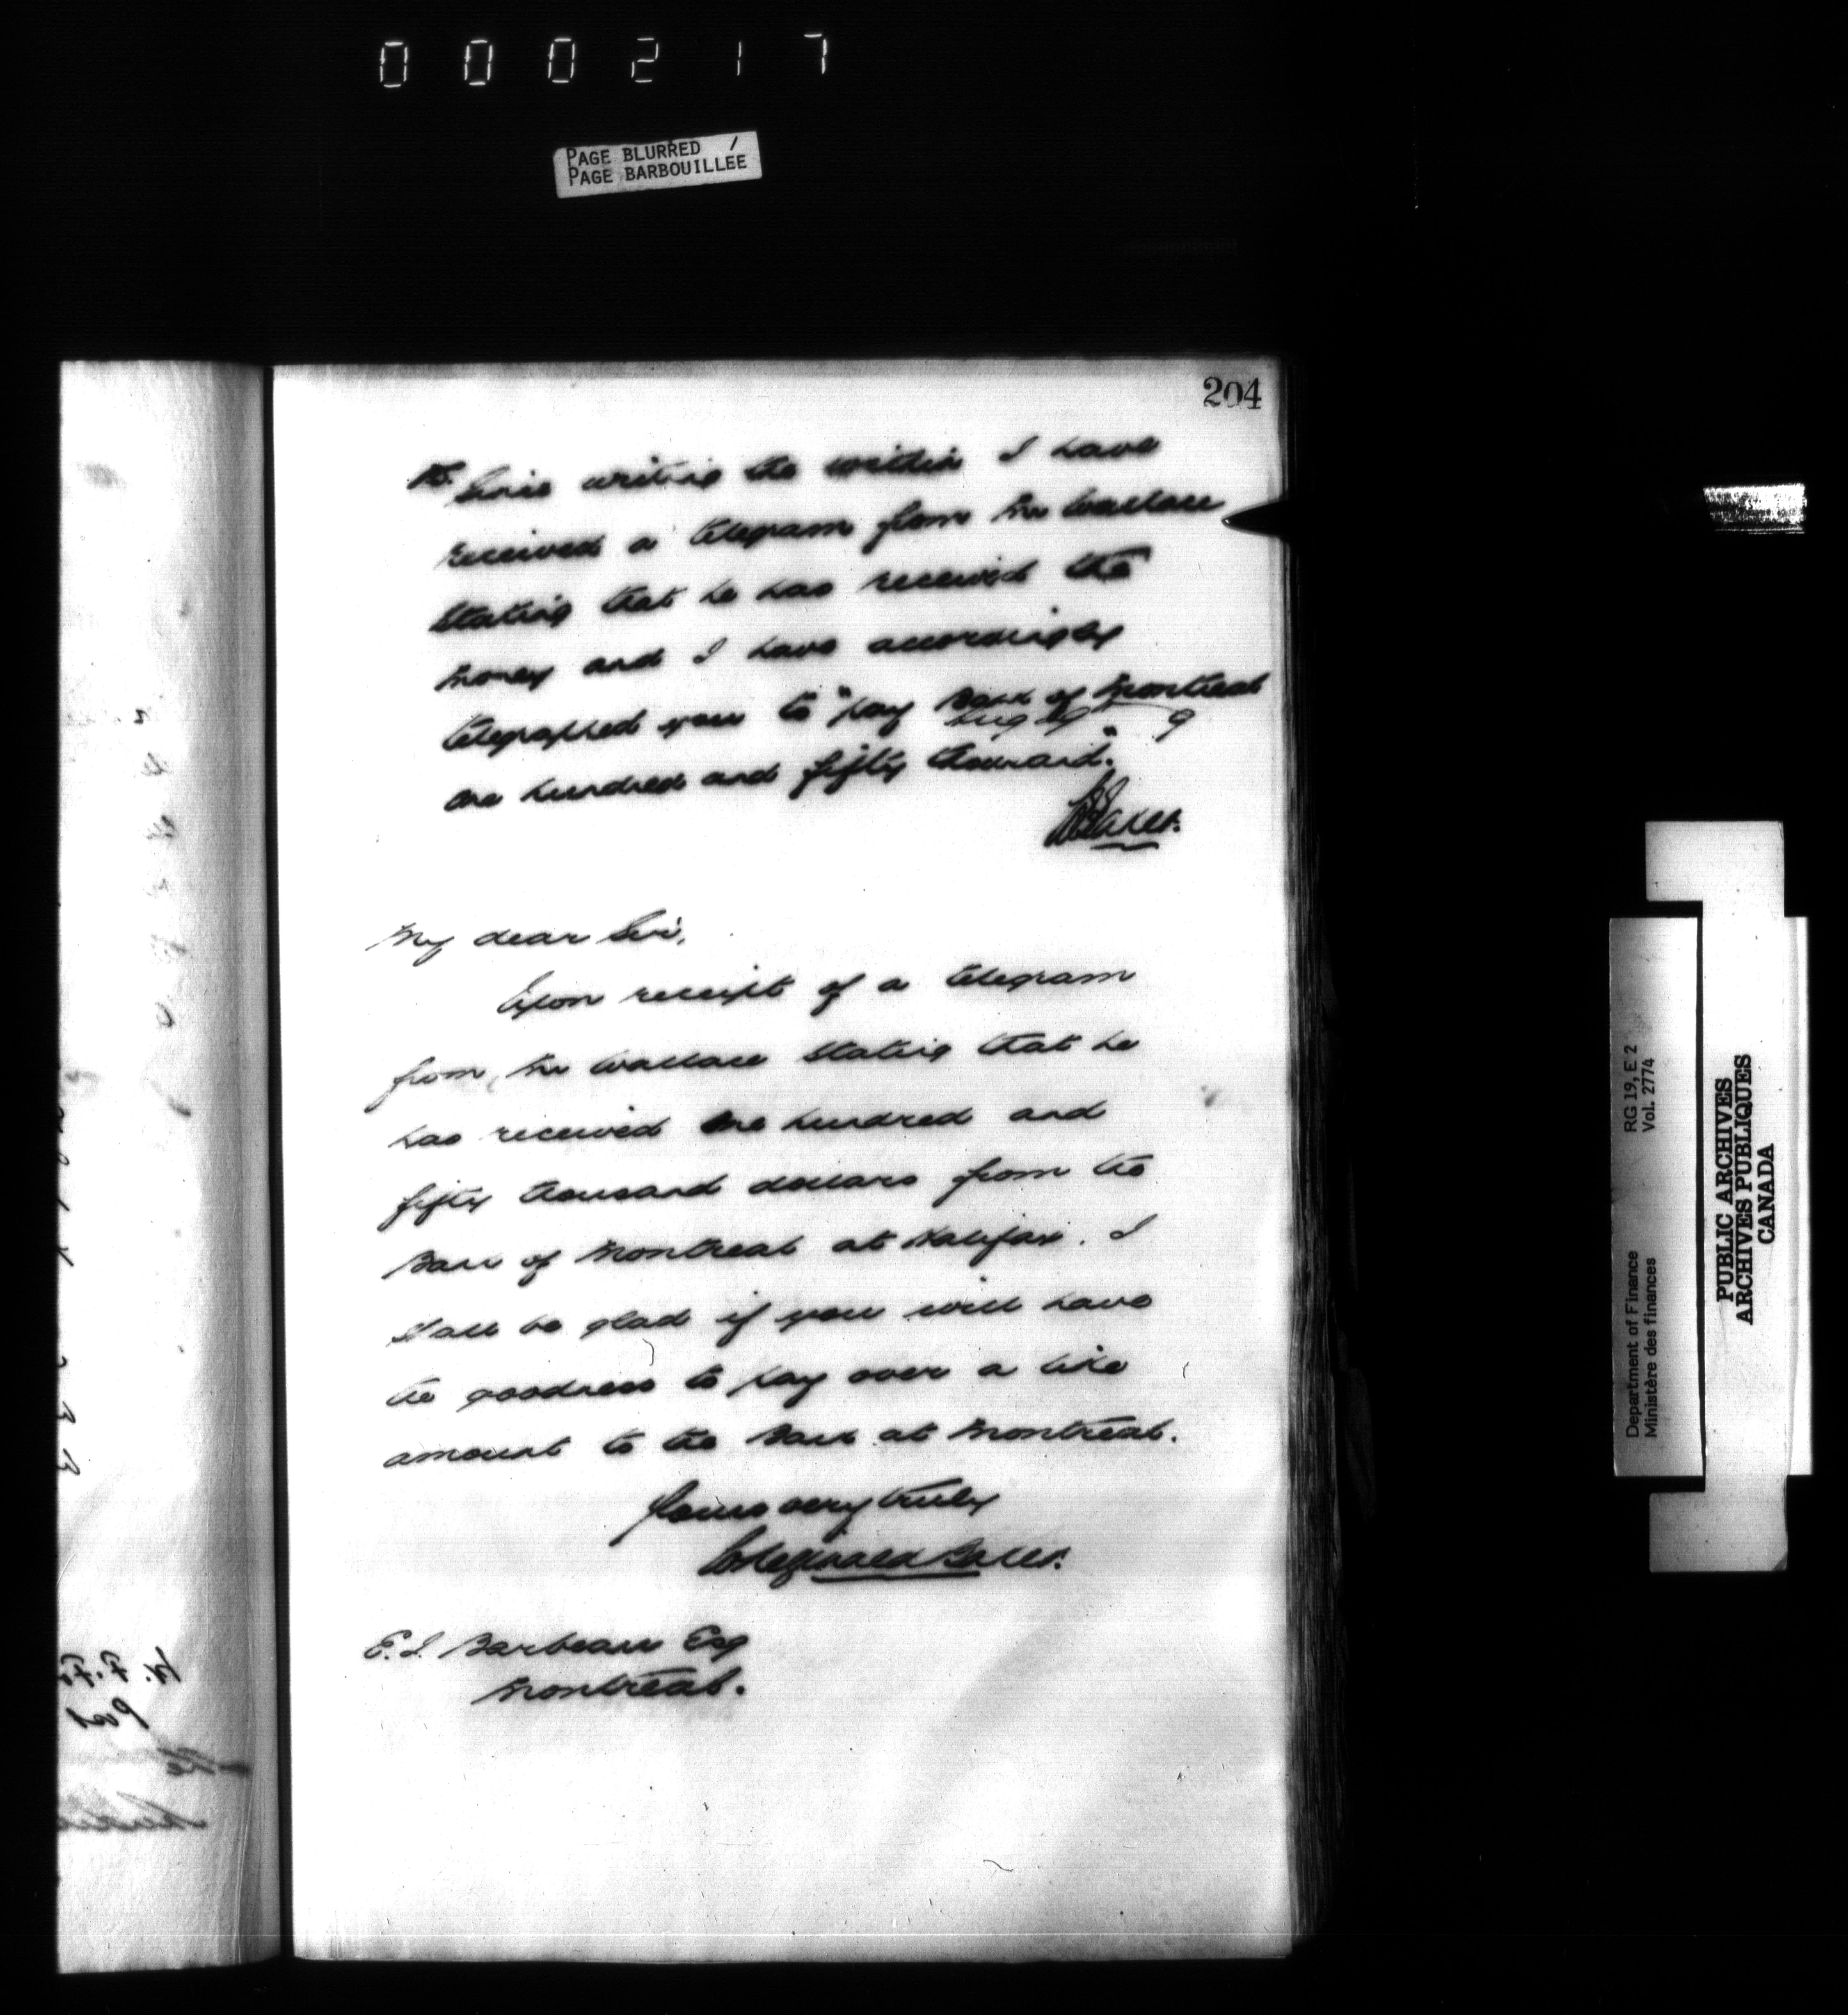 000217
PAGE BLURRED
PAGE BARBOUILLÉE
204
PS. Since writing the within I have
received a telegram from Mr Wallace
stating that he has received the
money and I have accordingly
telegraphed you to "pay Bank of Montreal
one hundred and fifty thousand".
Baker.
My dear Sir,
Upon receipt of a telegram
from Mr Wallace stating that he
has received one hundred and
fifty thousand dollars from the
Bank of Montreal at Halifax. I
shall be glad if you will have
the goodness to pay over a like
amount to the Bank at Montreal.
Yours very truly
Reginald Baker.
E. J. Barbeau Esq
Montreal.
Department of Finance
Ministère des finances
RG 19, E 2
Vol. 2774
PUBLIC ARCHIVES
ARCHIVES PUBLIQUES
CANADA